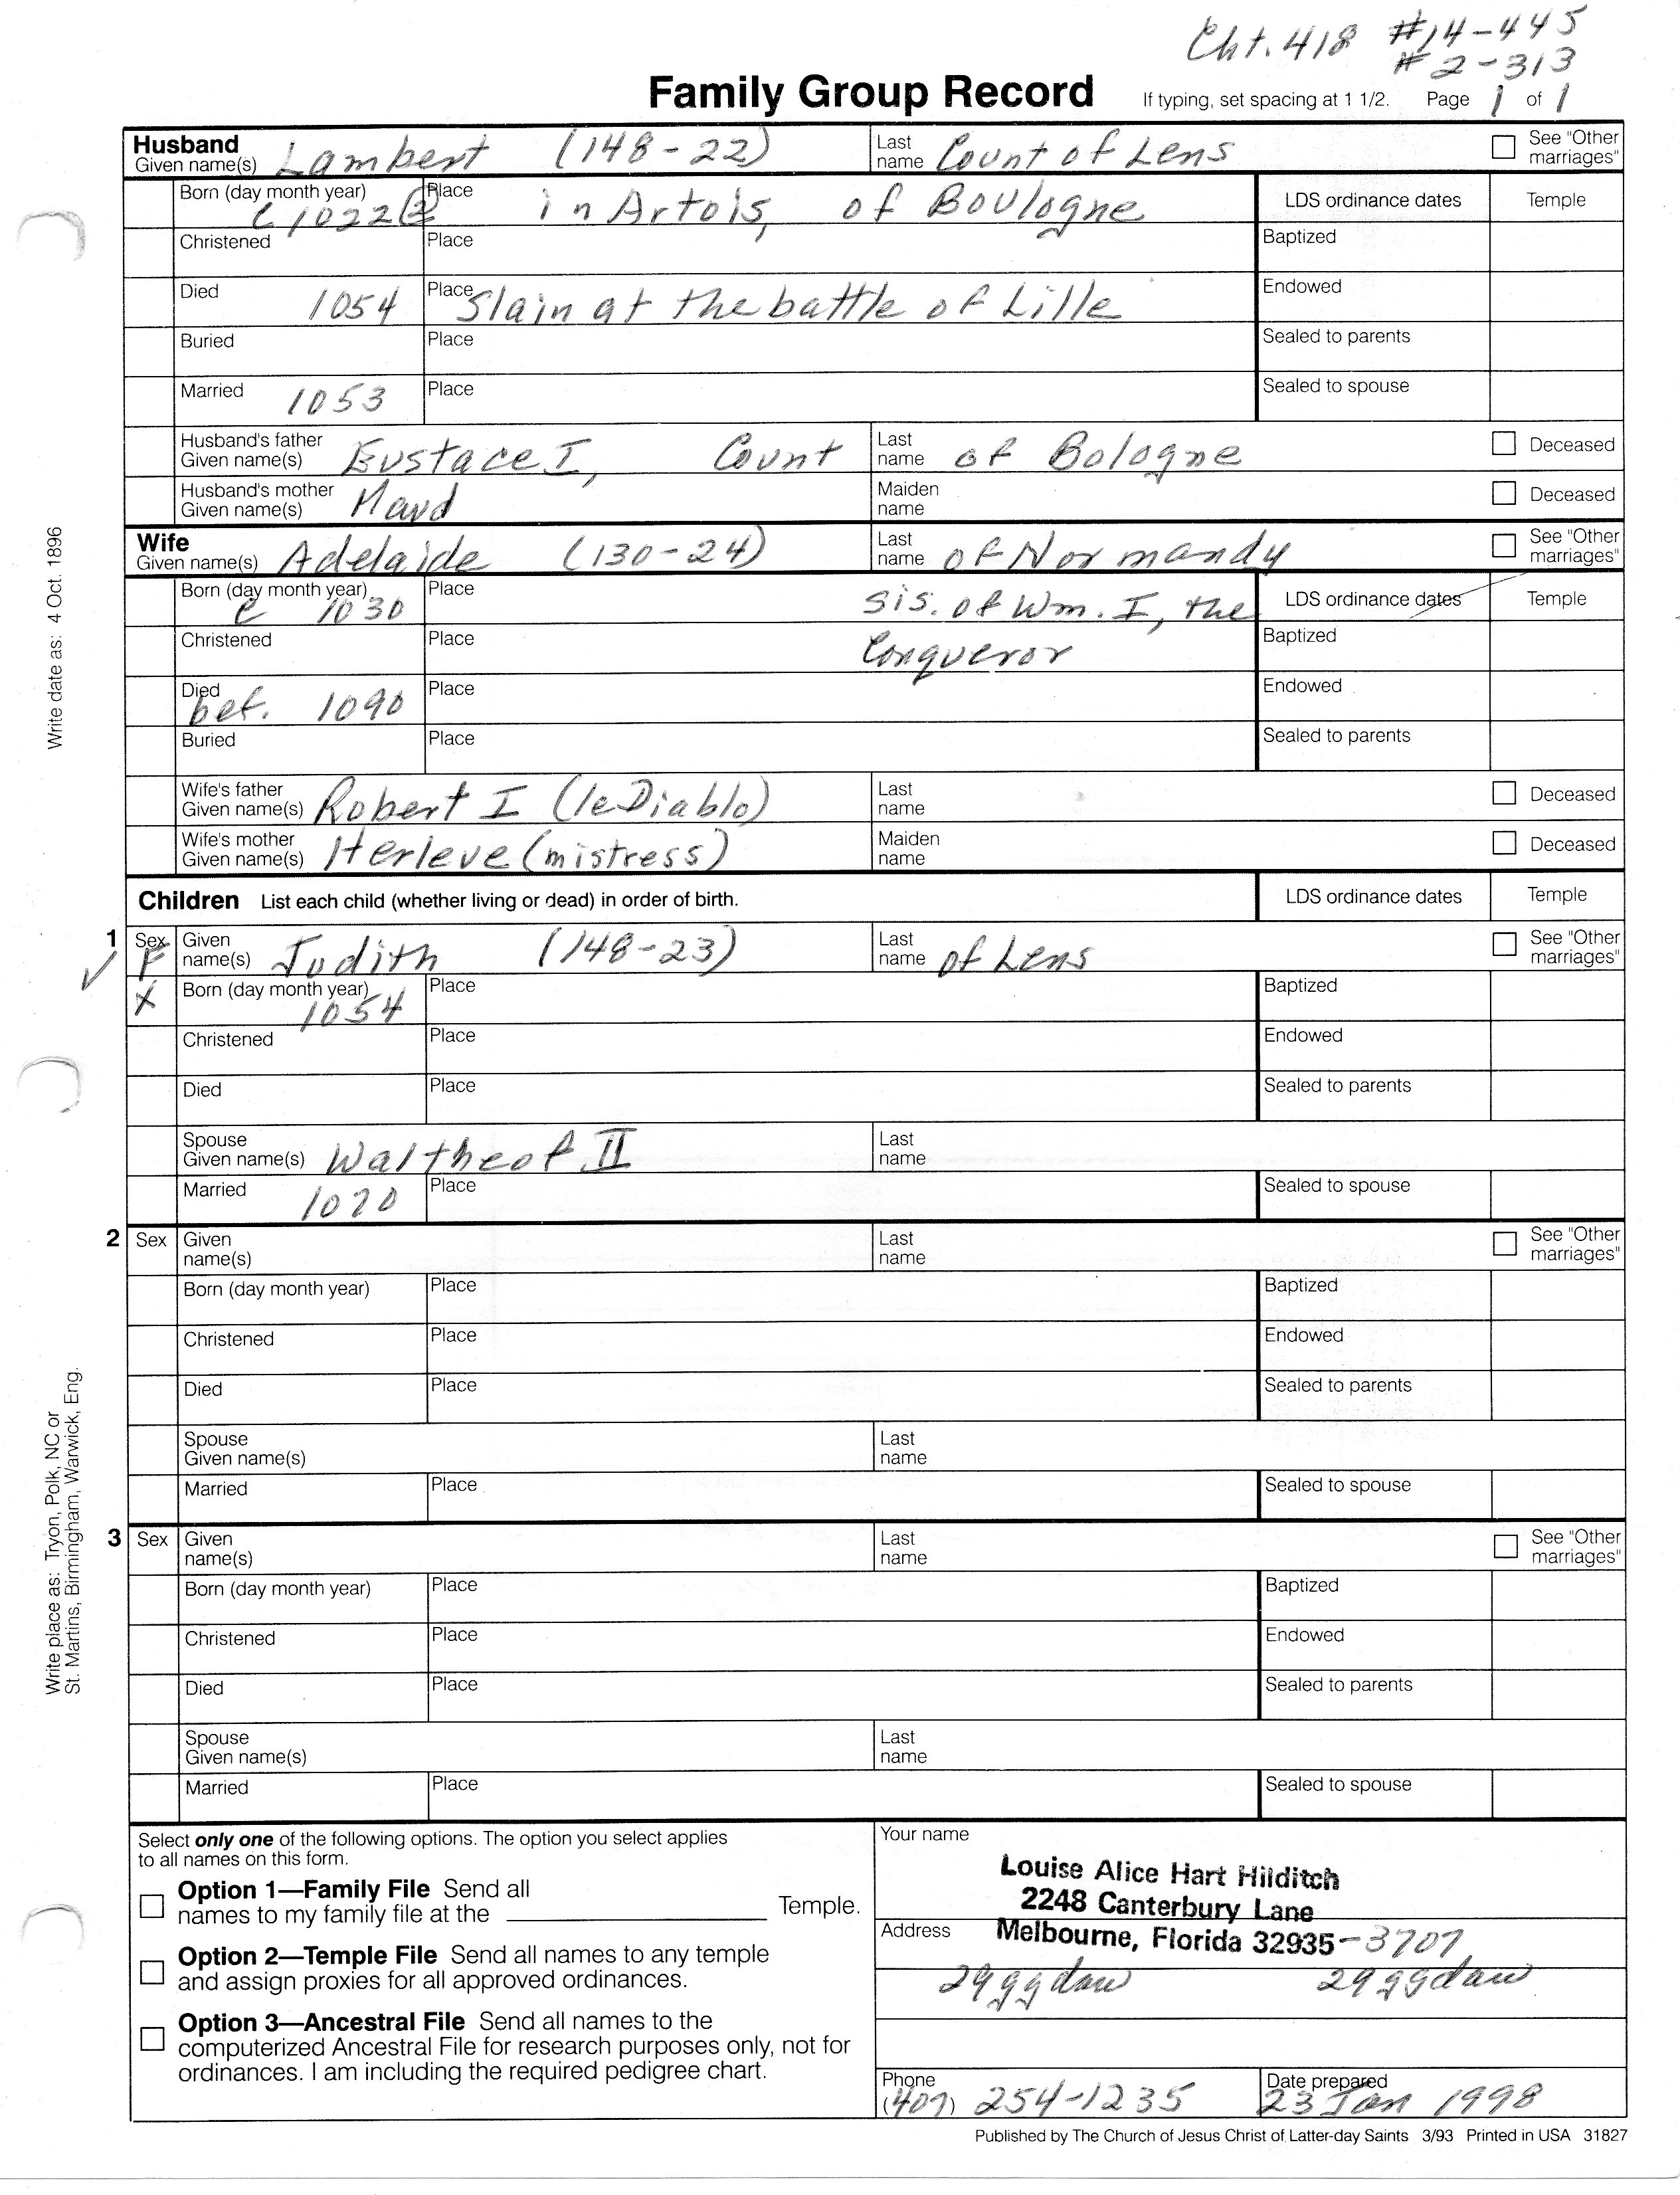 Cht. 418 #14-445
#2-313
Family Group Record If typing, set spacing at 1 1/2. Page 1 of 1
Husband
Given name(s) Lambert (148-22) Last name Count of Lens See "Other marriages"
Born (day month year) c 1022 Place in Artois, of Boulogne LDS ordinance dates Temple
Christened Place Baptized
Died 1054 Place Slain at the battle of Lille Endowed
Buried Place Sealed to parents
Married 1053 Place Sealed to spouse
Husband's father Given name(s) Eustace I, Count Last name of Bologne Deceased
Husband's mother Given name(s) Maud Maiden name Deceased
Wife
Given name(s) Adelaide (130-24) Last name of Normandy See "Other marriages"
Born (day month year) c 1030 Place sis. of Wm. I, the LDS ordinance dates Temple
Christened Place Conqueror Baptized
Died bef. 1090 Place Endowed
Buried Place Sealed to parents
Wife's father Given name(s) Robert I (le Diablo) Last name Deceased
Wife's mother Given name(s) Herleve (mistress) Maiden name Deceased
Children List each child (whether living or dead) in order of birth. LDS ordinance dates Temple
1 Sex F Given name(s) Judith (148-23) Last name of Lens See "Other marriages"
X Born (day month year) 1054 Place Baptized
Christened Place Endowed
Died Place Sealed to parents
Spouse Given name(s) Waltheof II Last name
Married 1070 Place Sealed to spouse
2 Sex Given name(s) Last name See "Other marriages"
Born (day month year) Place Baptized
Christened Place Endowed
Died Place Sealed to parents
Spouse Given name(s) Last name
Married Place Sealed to spouse
3 Sex Given name(s) Last name See "Other marriages"
Born (day month year) Place Baptized
Christened Place Endowed
Died Place Sealed to parents
Spouse Given name(s) Last name
Married Place Sealed to spouse
Write date as: 4 Oct. 1896
Write place as: Tryon, Polk, NC or
St. Martins, Birmingham, Warwick, Eng.
Select only one of the following options. The option you select applies
to all names on this form.
Option 1—Family File Send all
names to my family file at the Temple.
Option 2—Temple File Send all names to any temple
and assign proxies for all approved ordinances.
Option 3—Ancestral File Send all names to the
computerized Ancestral File for research purposes only, not for
ordinances. I am including the required pedigree chart.
Your name
Louise Alice Hart Hilditch
2248 Canterbury Lane
Address Melbourne, Florida 32935-3707
29ggdau 29ggdau
Phone (407) 254-1235 Date prepared 23 Jan 1998
Published by The Church of Jesus Christ of Latter-day Saints 3/93 Printed in USA 31827